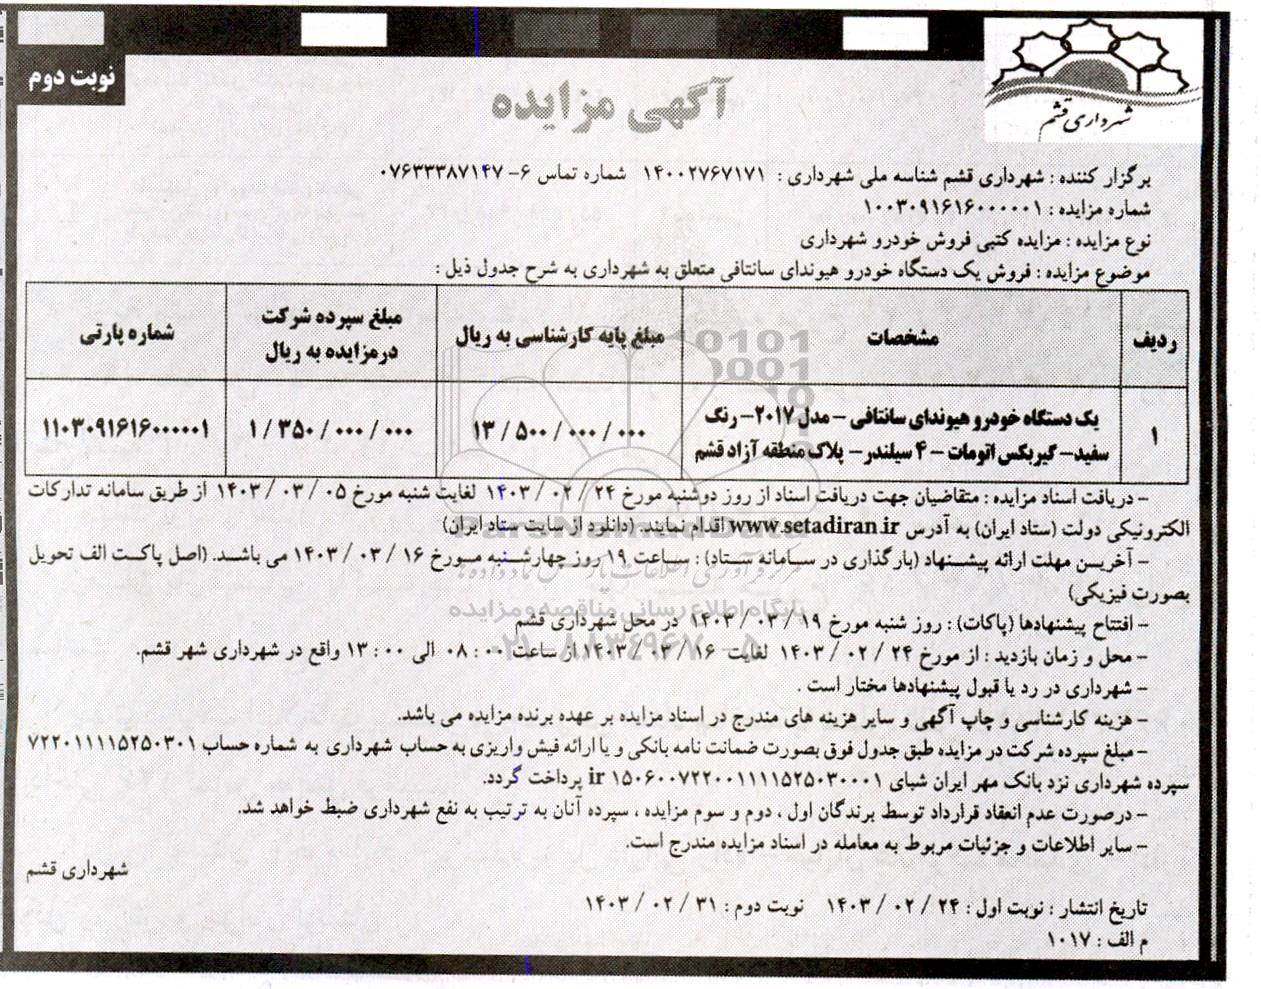 شهرداری قشم
نوبت دوم
آگهی مزایده
برگزار کننده : شهرداری قشم شناسه ملی شهرداری : ۱۴۰۰۲۷۶۷۱۷۱ شماره تماس ۶- ۰۷۶۳۳۳۸۷۱۴۷
شماره مزایده : ۱۰۰۳۰۹۱۶۱۶۰۰۰۰۰۱
نوع مزایده : مزایده کتبی فروش خودرو شهرداری
موضوع مزایده : فروش یک دستگاه خودرو هیوندای سانتافی متعلق به شهرداری به شرح جدول ذیل :
ردیف مشخصات مبلغ پایه کارشناسی به ریال مبلغ سپرده شرکت درمزایده به ریال شماره پارتی
۱ یک دستگاه خودرو هیوندای سانتافی – مدل ۲۰۱۷– رنگ ۱۳/۵۰۰/۰۰۰/۰۰۰ ۱/۳۵۰/۰۰۰/۰۰۰ ۱۱۰۳۰۹۱۶۱۶۰۰۰۰۰۱
سفید– گیربکس اتومات – ۴ سیلندر – پلاک منطقه آزاد قشم
– دریافت اسناد مزایده : متقاضیان جهت دریافت اسناد از روز دوشنبه مورخ ۲۴ / ۰۲ / ۱۴۰۳ لغایت شنبه مورخ ۰۵ / ۰۳ / ۱۴۰۳ از طریق سامانه تدارکات
الکترونیکی دولت (ستاد ایران) به آدرس www.setadiran.ir اقدام نمایند. (دانلود از سایت ستاد ایران)
– آخرین مهلت ارائه پیشنهاد (بارگذاری در سامانه ستاد) : ساعت ۱۹ روز چهارشنبه مورخ ۱۶ / ۰۳ / ۱۴۰۳ می باشد. (اصل پاکت الف تحویل
بصورت فیزیکی)
– افتتاح پیشنهادها (پاکات) : روز شنبه مورخ ۱۹ / ۰۳ / ۱۴۰۳ در محل شهرداری قشم
– محل و زمان بازدید : از مورخ ۲۴ / ۰۲ / ۱۴۰۳ لغایت ۱۶ / ۰۳ / ۱۴۰۳ از ساعت ۰۰ : ۰۸ الی ۰۰ : ۱۳ واقع در شهرداری شهر قشم.
– شهرداری در رد یا قبول پیشنهادها مختار است .
– هزینه کارشناسی و چاپ آگهی و سایر هزینه های مندرج در اسناد مزایده بر عهده برنده مزایده می باشد.
– مبلغ سپرده شرکت در مزایده طبق جدول فوق بصورت ضمانت نامه بانکی و یا ارائه فیش واریزی به حساب شهرداری به شماره حساب ۷۲۲۰۱۱۱۱۵۲۵۰۳۰۱
سپرده شهرداری نزد بانک مهر ایران شبای ir ۱۵۰۶۰۰۷۲۲۰۰۱۱۱۱۵۲۵۰۳۰۰۰۱ پرداخت گردد.
– درصورت عدم انعقاد قرارداد توسط برندگان اول ، دوم و سوم مزایده ، سپرده آنان به ترتیب به نفع شهرداری ضبط خواهد شد.
– سایر اطلاعات و جزئیات مربوط به معامله در اسناد مزایده مندرج است.
شهرداری قشم
تاریخ انتشار : نوبت اول : ۲۴ / ۰۲ / ۱۴۰۳ نوبت دوم : ۳۱ / ۰۲ / ۱۴۰۳
م الف : ۱۰۱۷
ParsNamadData
پایگاه اطلاع رسانی مناقصه و مزایده
۰۲۱-۸۸۳۴۹۶۷۰-۵